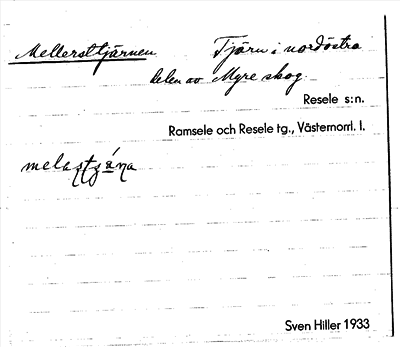 Mellersttjärnen Tjärn i nordöstra
delen av Myre skog.
Resele s:n.
Ramsele och Resele tg., Västernorrl. l.
Sven Hiller 1933